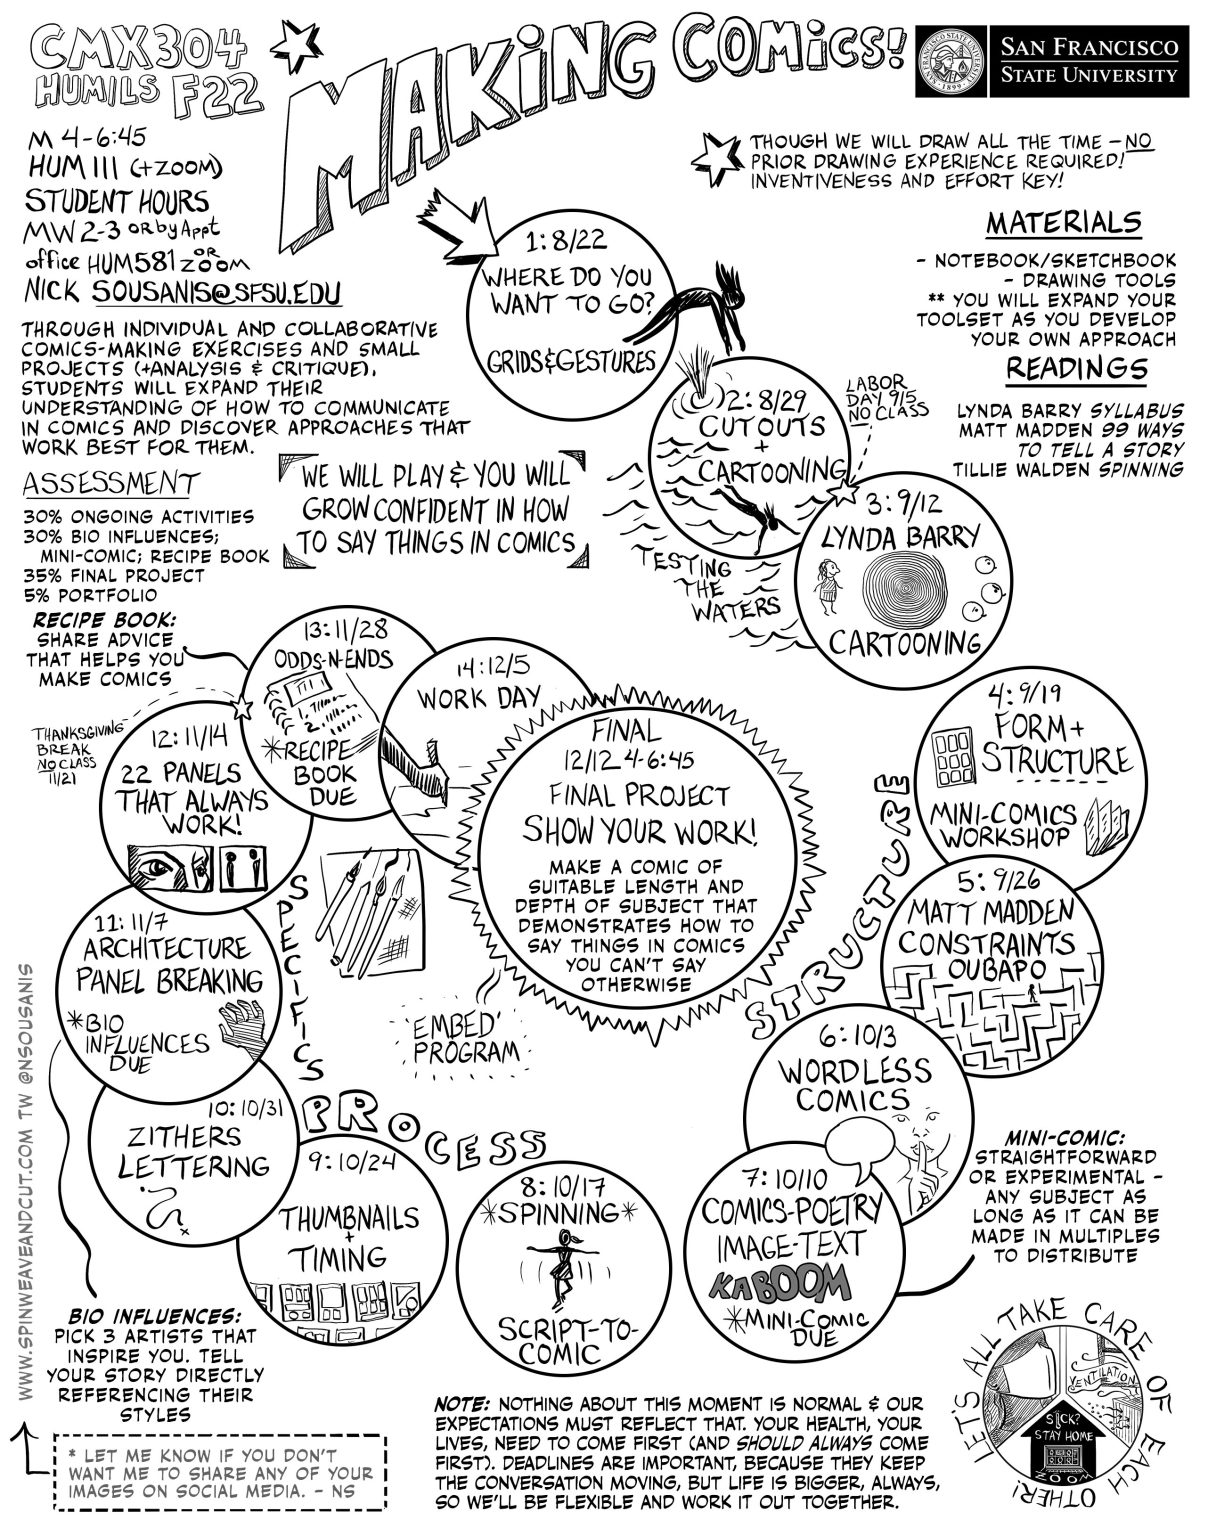 CMX304
HUM/LS F22
MAKING COMICS!
SAN FRANCISCO
STATE UNIVERSITY
M 4-6:45
HUM 111 (+ZOOM)
STUDENT HOURS
MW 2-3 OR by Appt
office HUM 581 OR ZOOM
NICK SOUSANIS@SFSU.EDU
THOUGH WE WILL DRAW ALL THE TIME - NO
PRIOR DRAWING EXPERIENCE REQUIRED!
INVENTIVENESS AND EFFORT KEY!
MATERIALS
- NOTEBOOK/SKETCHBOOK
- DRAWING TOOLS
** YOU WILL EXPAND YOUR
TOOLSET AS YOU DEVELOP
YOUR OWN APPROACH
READINGS
LYNDA BARRY SYLLABUS
MATT MADDEN 99 WAYS
TO TELL A STORY
TILLIE WALDEN SPINNING
THROUGH INDIVIDUAL AND COLLABORATIVE
COMICS-MAKING EXERCISES AND SMALL
PROJECTS (+ANALYSIS & CRITIQUE),
STUDENTS WILL EXPAND THEIR
UNDERSTANDING OF HOW TO COMMUNICATE
IN COMICS AND DISCOVER APPROACHES THAT
WORK BEST FOR THEM.
ASSESSMENT
30% ONGOING ACTIVITIES
30% BIO INFLUENCES;
MINI-COMIC; RECIPE BOOK
35% FINAL PROJECT
5% PORTFOLIO
WE WILL PLAY & YOU WILL
GROW CONFIDENT IN HOW
TO SAY THINGS IN COMICS
1: 8/22
WHERE DO YOU
WANT TO GO?
GRIDS & GESTURES
2: 8/29
CUTOUTS
+
CARTOONING
LABOR
DAY 9/5
NO CLASS
TESTING
THE
WATERS
3: 9/12
LYNDA BARRY
CARTOONING
4: 9/19
FORM +
STRUCTURE
MINI-COMICS
WORKSHOP
STRUCTURE
5: 9/26
MATT MADDEN
CONSTRAINTS
OUBAPO
6: 10/3
WORDLESS
COMICS
7: 10/10
COMICS-POETRY
IMAGE-TEXT
KABOOM
*MINI-COMIC
DUE
MINI-COMIC:
STRAIGHTFORWARD
OR EXPERIMENTAL -
ANY SUBJECT AS
LONG AS IT CAN BE
MADE IN MULTIPLES
TO DISTRIBUTE
8: 10/17
*SPINNING*
SCRIPT-TO-
COMIC
PROCESS
9: 10/24
THUMBNAILS
+
TIMING
10: 10/31
ZITHERS
LETTERING
SPECIFICS
11: 11/7
ARCHITECTURE
PANEL BREAKING
*BIO
INFLUENCES
DUE
BIO INFLUENCES:
PICK 3 ARTISTS THAT
INSPIRE YOU. TELL
YOUR STORY DIRECTLY
REFERENCING THEIR
STYLES
12: 11/14
22 PANELS
THAT ALWAYS
WORK!
THANKSGIVING
BREAK
NO CLASS
11/21
13: 11/28
ODDS-N-ENDS
1.
2.
*RECIPE
BOOK
DUE
RECIPE BOOK:
SHARE ADVICE
THAT HELPS YOU
MAKE COMICS
14: 12/5
WORK DAY
FINAL
12/12 4-6:45
FINAL PROJECT
SHOW YOUR WORK!
MAKE A COMIC OF
SUITABLE LENGTH AND
DEPTH OF SUBJECT THAT
DEMONSTRATES HOW TO
SAY THINGS IN COMICS
YOU CAN'T SAY
OTHERWISE
'EMBED'
PROGRAM
WWW.SPINWEAVEANDCUT.COM TW @NSOUSANIS
* LET ME KNOW IF YOU DON'T
WANT ME TO SHARE ANY OF YOUR
IMAGES ON SOCIAL MEDIA. - NS
NOTE: NOTHING ABOUT THIS MOMENT IS NORMAL & OUR
EXPECTATIONS MUST REFLECT THAT. YOUR HEALTH, YOUR
LIVES, NEED TO COME FIRST (AND SHOULD ALWAYS COME
FIRST). DEADLINES ARE IMPORTANT, BECAUSE THEY KEEP
THE CONVERSATION MOVING, BUT LIFE IS BIGGER, ALWAYS,
SO WE'LL BE FLEXIBLE AND WORK IT OUT TOGETHER.
LET'S ALL TAKE CARE OF EACH OTHER!
VENTILATION
SICK?
STAY HOME
ZOOM